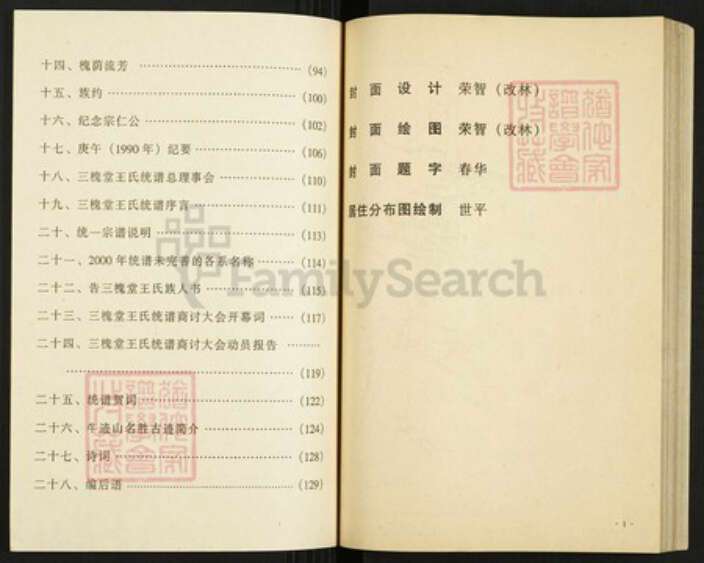 十四、槐荫流芳 ……………………………… (94)
十五、族约 ……………………………… (100)
十六、纪念宗仁公 ……………………………… (102)
十七、庚午（1990年）纪要 ……………………………… (106)
十八、三槐堂王氏统谱总理事会 ……………………… (110)
十九、三槐堂王氏统谱序言 ……………………… (111)
二十、统一宗谱说明 ……………………… (113)
二十一、2000年统谱未完善的各系名称 ……… (114)
二十二、告三槐堂王氏族人书 ……………… (115)
二十三、三槐堂王氏统谱商讨大会开幕词 …… (117)
二十四、三槐堂王氏统谱商讨大会动员报告 ………
……………………………… (119)
二十五、统谱贺词 ……………………… (122)
二十六、牛迹山名胜古迹简介 ……………… (124)
二十七、诗词 ……………………… (128)
二十八、编后语 ……………………… (129)
封面设计 荣智（改林）
封面绘图 荣智（改林）
封面题字 春华
居住分布图绘制 世平
· 1 ·
FamilySearch